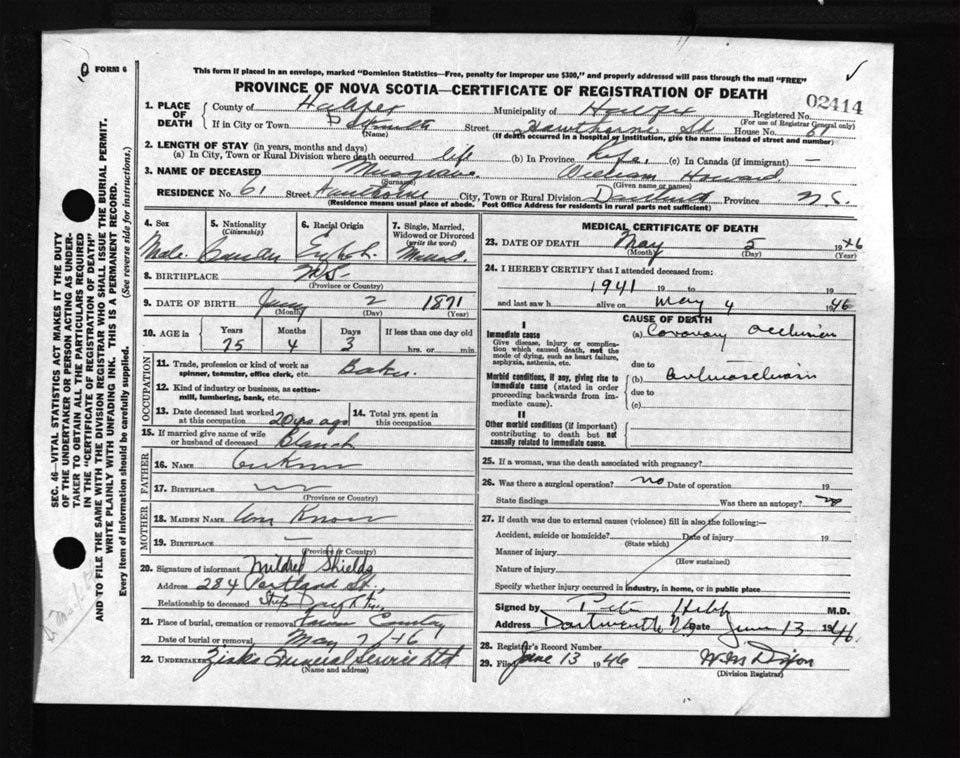 FORM 6
This form if placed in an envelope, marked "Dominion Statistics—Free, penalty for improper use $300," and properly addressed will pass through the mail "FREE"
PROVINCE OF NOVA SCOTIA—CERTIFICATE OF REGISTRATION OF DEATH
02414
1. PLACE OF DEATH
County of Halifax Municipality of Halifax Registered No.
(For use of Registrar General only)
If in City or Town Street Hawthorne St House No. 61
(Name) (If death occurred in a hospital or institution, give the name instead of street and number)
2. LENGTH OF STAY (in years, months and days)
(a) In City, Town or Rural Division where death occurred life (b) In Province life (c) In Canada (if immigrant) —
3. NAME OF DECEASED Musgrave William Howard
(Surname) (Given name or names)
RESIDENCE No. 61 Street Hawthorne City, Town or Rural Division Dartmouth Province N.S.
(Residence means usual place of abode. Post Office Address for residents in rural parts not sufficient)
4. Sex
Male
5. Nationality
(Citizenship)
6. Racial Origin
English
7. Single, Married, Widowed or Divorced
(write the word)
8. BIRTHPLACE N.S.
(Province or County)
9. DATE OF BIRTH 2 1871
(Month) (Day) (Year)
10. AGE in
Years Months Days If less than one day old
75 4 3 hrs. or min.
OCCUPATION
11. Trade, profession or kind of work as spinner, teamster, office clerk, etc. Baker
12. Kind of industry or business, as cotton-mill, lumbering, bank, etc.
13. Date deceased last worked at this occupation 20 yrs ago
14. Total yrs. spent in this occupation
15. If married give name of wife or husband of deceased Blanch
FATHER
16. NAME
17. BIRTHPLACE
(Province or Country)
MOTHER
18. MAIDEN NAME
19. BIRTHPLACE —
(Province or Country)
20. Signature of informant Mildred Shields
Address 284 Portland St.,
Relationship to deceased Step Daughter
21. Place of burial, cremation or removal Cemetery
Date of burial or removal May 7/46
22. UNDERTAKER Funeral Service Ltd
(Name and address)
MEDICAL CERTIFICATE OF DEATH
23. DATE OF DEATH May 5 1946
(Month) (Day) (Year)
24. I HEREBY CERTIFY that I attended deceased from:
1941 19 to 19
and last saw h alive on May 4 1946
CAUSE OF DEATH
I
Immediate cause
Give disease, injury or complication which caused death, not the mode of dying, such as heart failure, asphyxia, asthenia, etc.
(a) Coronary occlusion
due to
Morbid conditions, if any, giving rise to immediate cause (stated in order proceeding backwards from immediate cause).
(b)
due to
(c)
II
Other morbid conditions (if important) contributing to death but not causally related to immediate cause.
25. If a woman, was the death associated with pregnancy?
26. Was there a surgical operation? no Date of operation 19
State findings Was there an autopsy? no
27. If death was due to external causes (violence) fill in also the following:—
Accident, suicide or homicide? Date of injury 19
(State which)
Manner of injury
(How sustained)
Nature of injury
Specify whether injury occurred in industry, in home, or in public place
Signed by M.D.
Address Dartmouth NS Date June 13 1946
28. Registrar's Record Number
29. Filed June 13 1946 W.M Dixon
(Division Registrar)
SEC. 46—VITAL STATISTICS ACT MAKES IT THE DUTY OF THE UNDERTAKER OR PERSON ACTING AS UNDERTAKER TO OBTAIN ALL THE PARTICULARS REQUIRED IN THE "CERTIFICATE OF REGISTRATION OF DEATH" AND TO FILE THE SAME WITH THE DIVISION REGISTRAR WHO SHALL ISSUE THE BURIAL PERMIT.
WRITE PLAINLY WITH UNFADING INK. THIS IS A PERMANENT RECORD.
Every item of information should be carefully supplied. (See reverse side for instructions.)